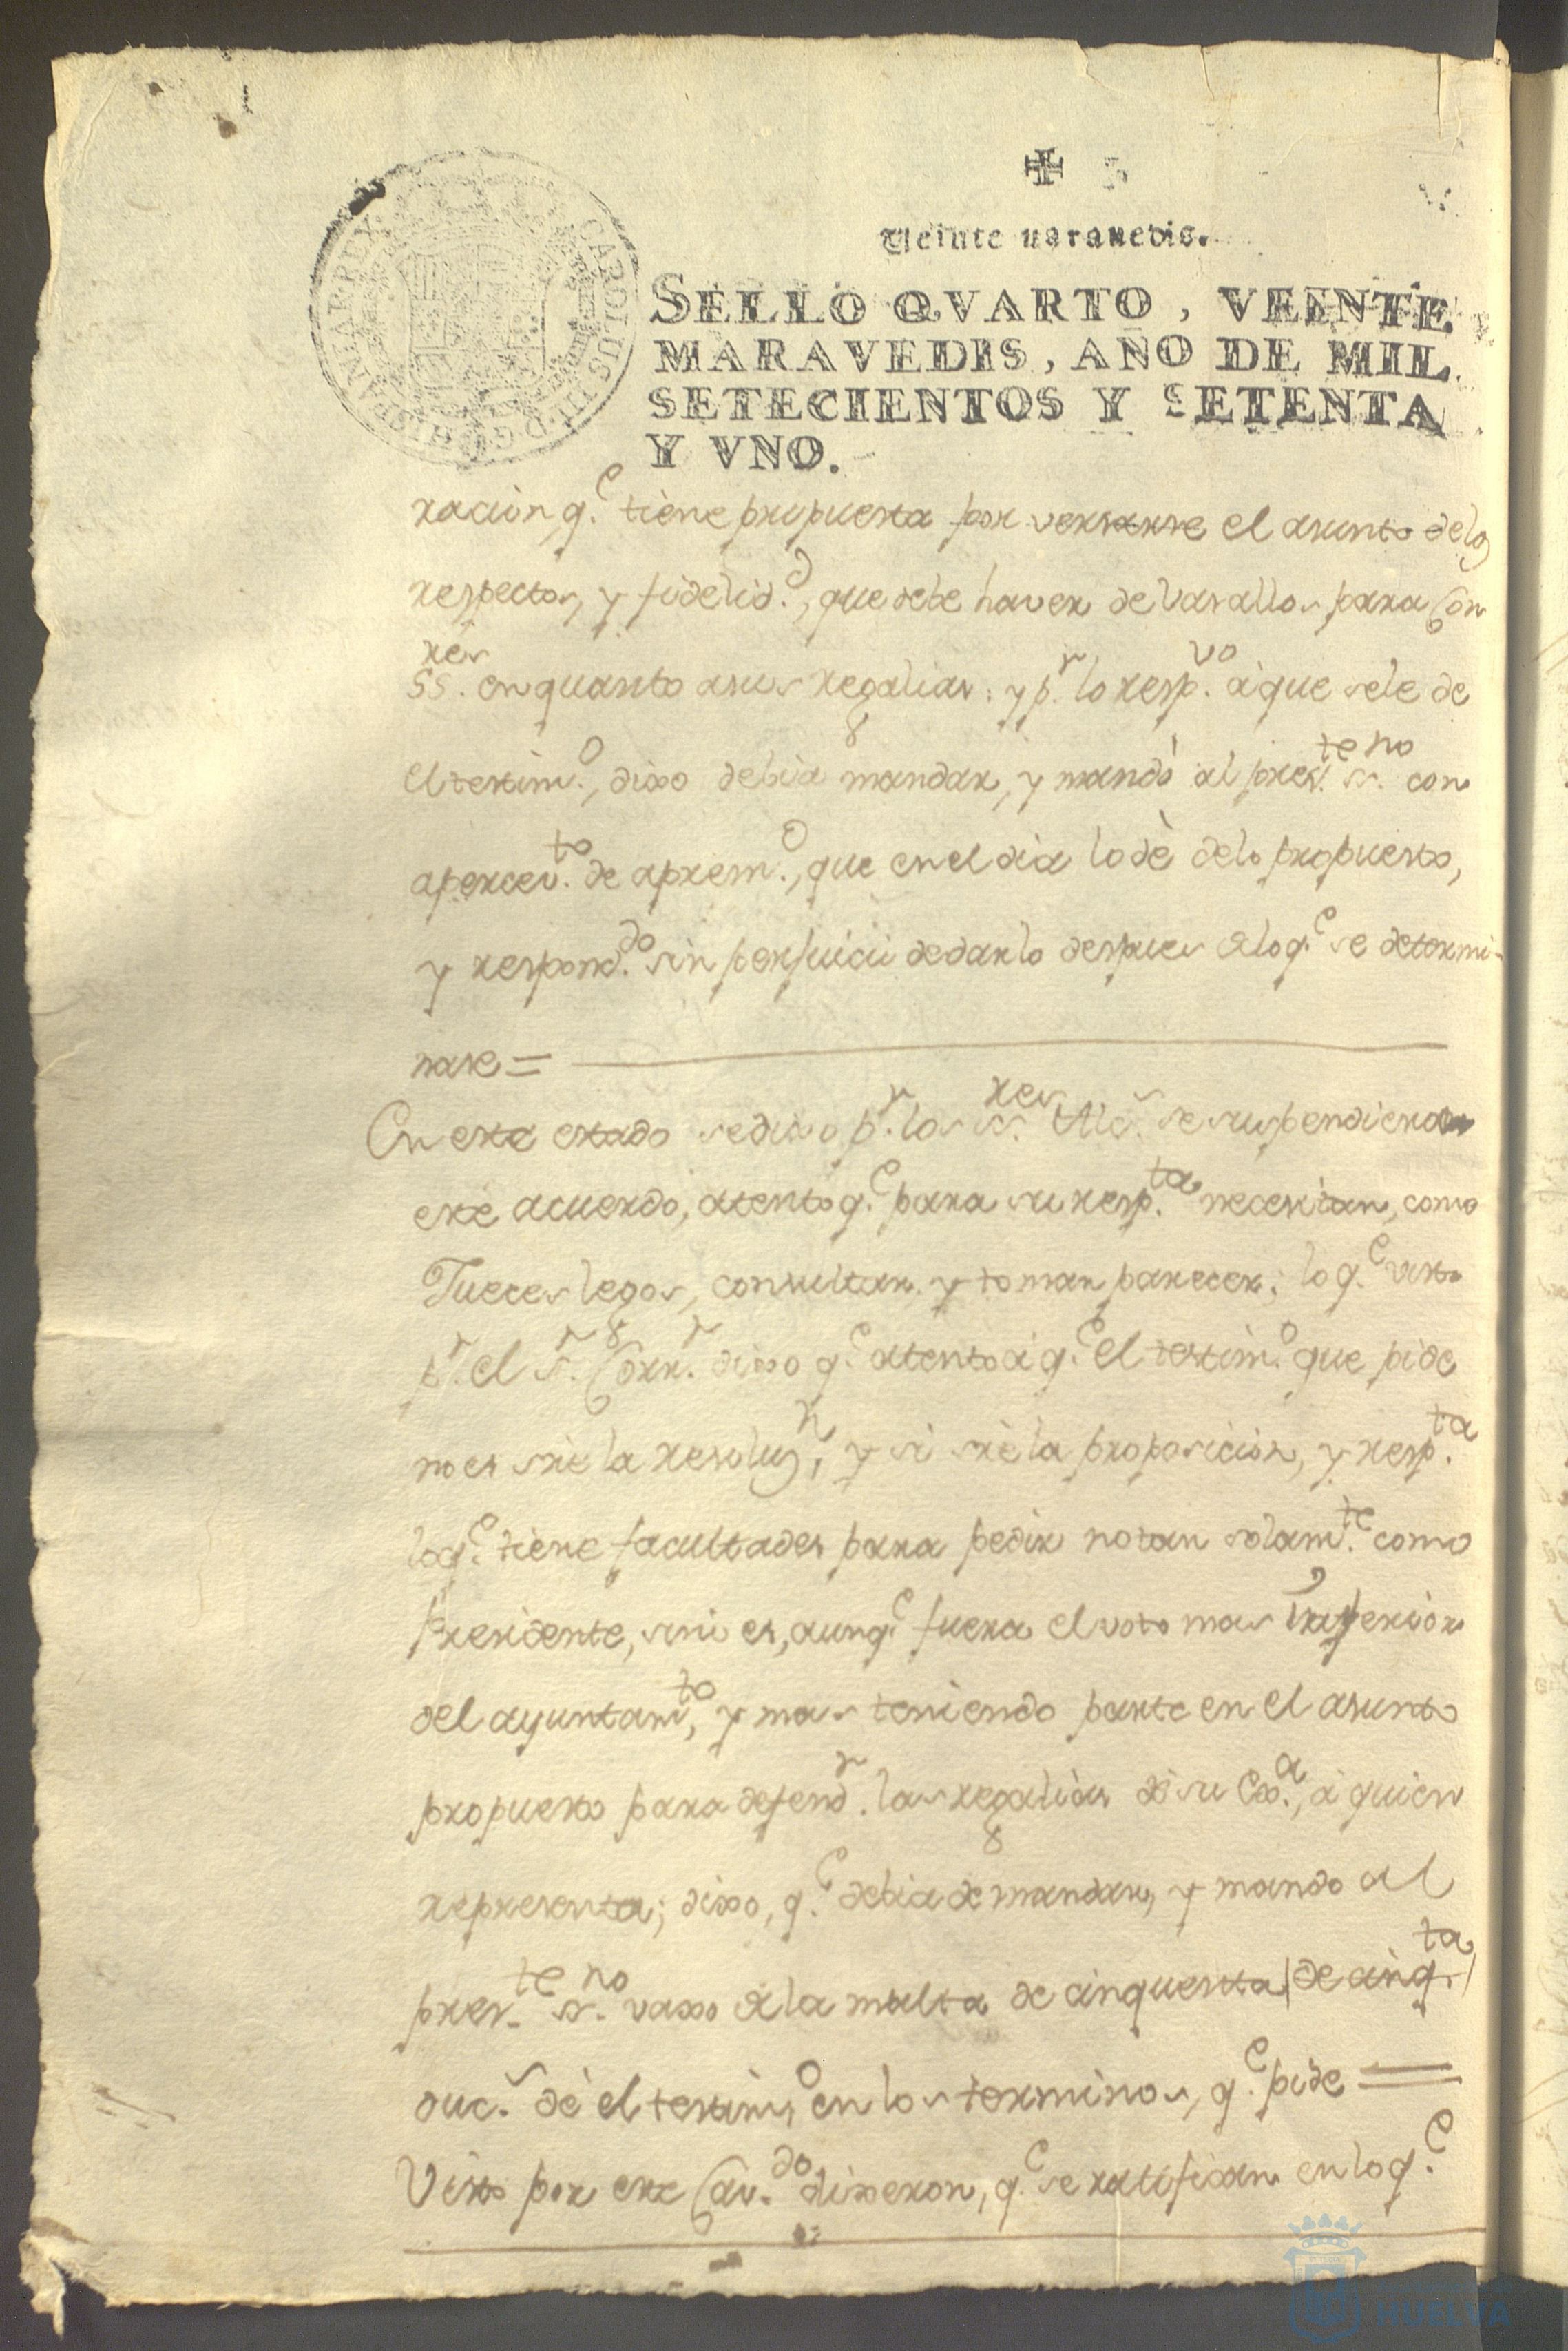 ✠
Veinte maravedis.
CAROLUS III D.G. HISPANIAR. REX
SELLO QVARTO, VEINTE
MARAVEDIS, AÑO DE MIL
SETECIENTOS Y SETENTA
Y VNO.
racion q.e tiene propuesta por versarse el asunto de los
respectos, y fidelid.d, que debe haver de Vasallos para con
SS.res en quanto a sus regalias; y p.r lo resp.vo a que se le de
el testim.o, dixo debia mandar, y mandò al pres.te ss.no con
apercev.to de aprem.o, que en el dia lo dè de lo propuesto,
y respond.do sin perjuicio de darlo despues de lo q.e se determi-
nase =
En este estado se dixo p.r los ss.res Alc.s se suspendiera
este acuerdo, atento q.e para su resp.ta necesitan, como
Jueces legos, consultar y tomar parecer; lo q.e visto
p.r el s.r Corr.r dixo q.e atento à q.e el testim.o que pide
no es sre la resoluz.n, y si sre la proposicion, y resp.ta
lo q.e tiene facultades para pedir no tan solam.te como
Presidente, sino es, aunq.e fuera el voto mas Inferior
del ayuntam.to, y mas teniendo parte en el asunto
propuesto para defend.r las regalias de su Ex.a, à quien
representa; dixo, q.e debia de mandar, y mando al
pres.te ss.no vaxo de la multa de cinquenta (de cinq.ta)
duc.s dè el testim.o en los terminos, q.e pide =
Visto por este Cav.do dixeron, q.e se ratifican en lo q.e
HUELVA